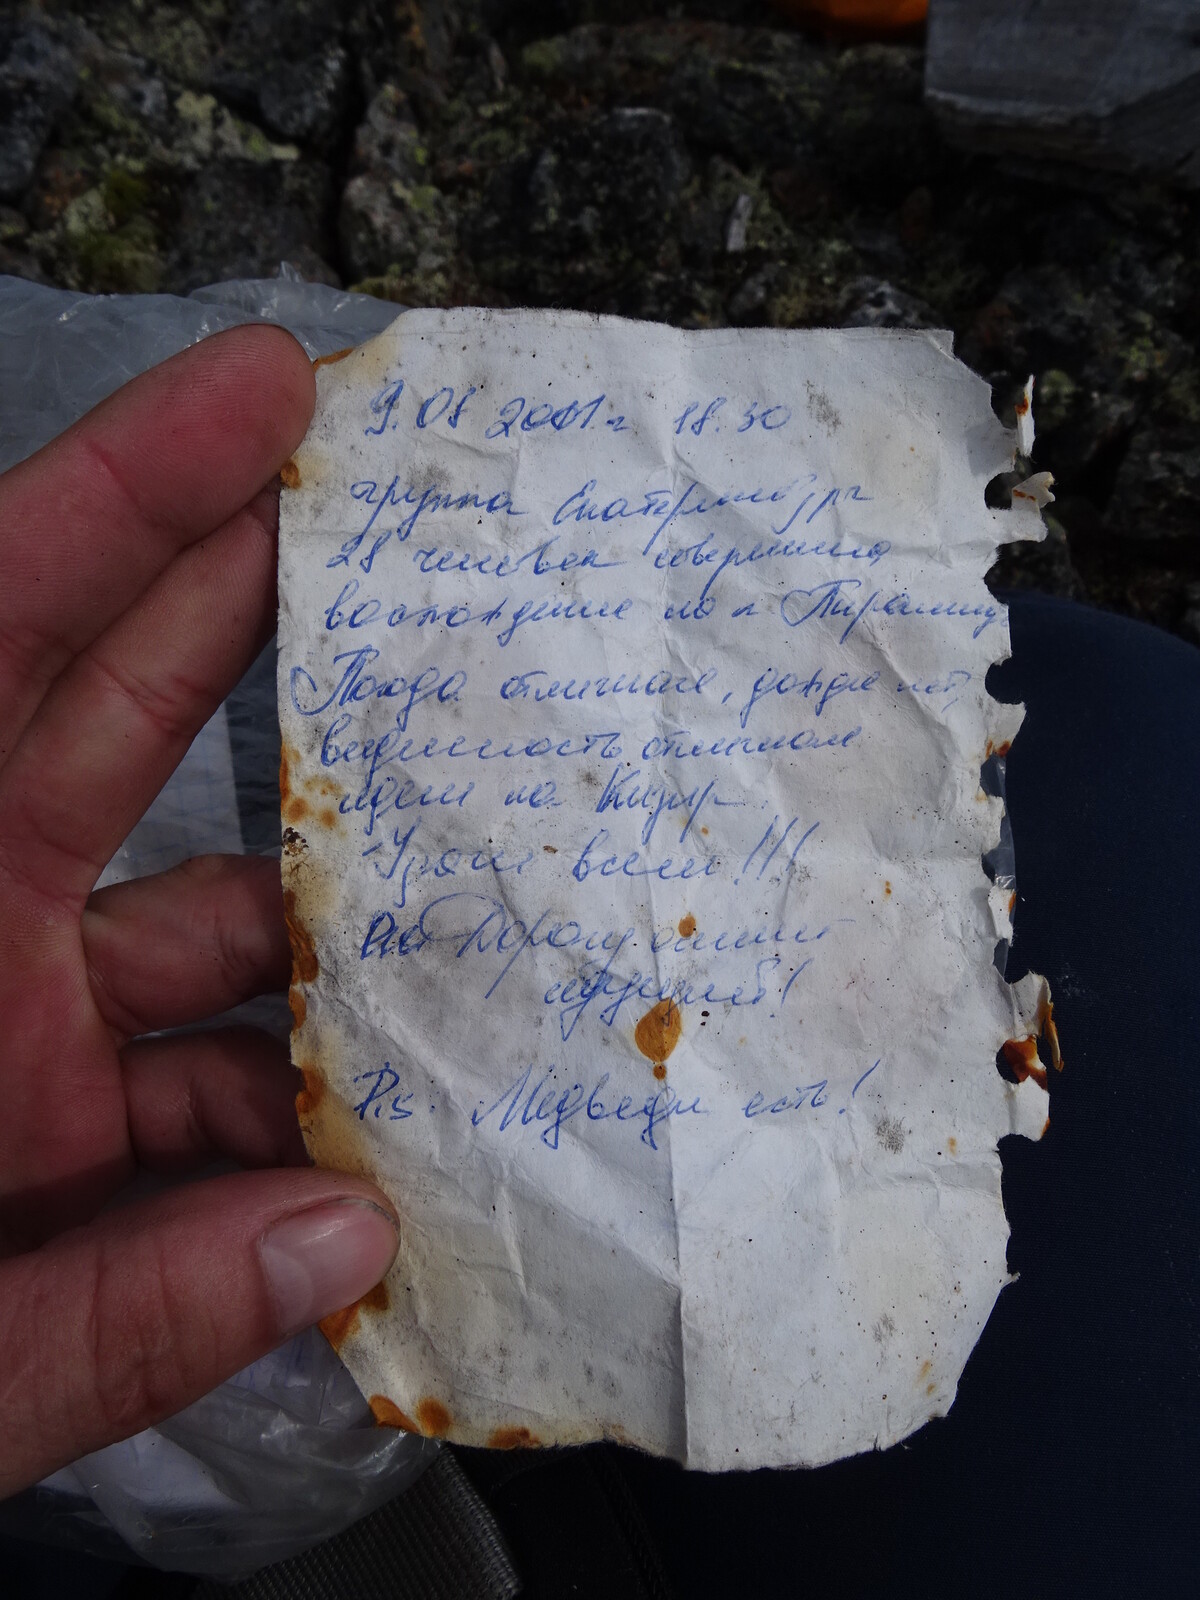 9.08 2001г 18.30
группа Екатеринбург
28 человек совершила
восхождение на п Пирамид
Погода отличная, дождя нет,
видимость отличная
идем на Кизир
Удачи всем!!!
Дорогу осилит
идущий!
P.s. Медведи есть!